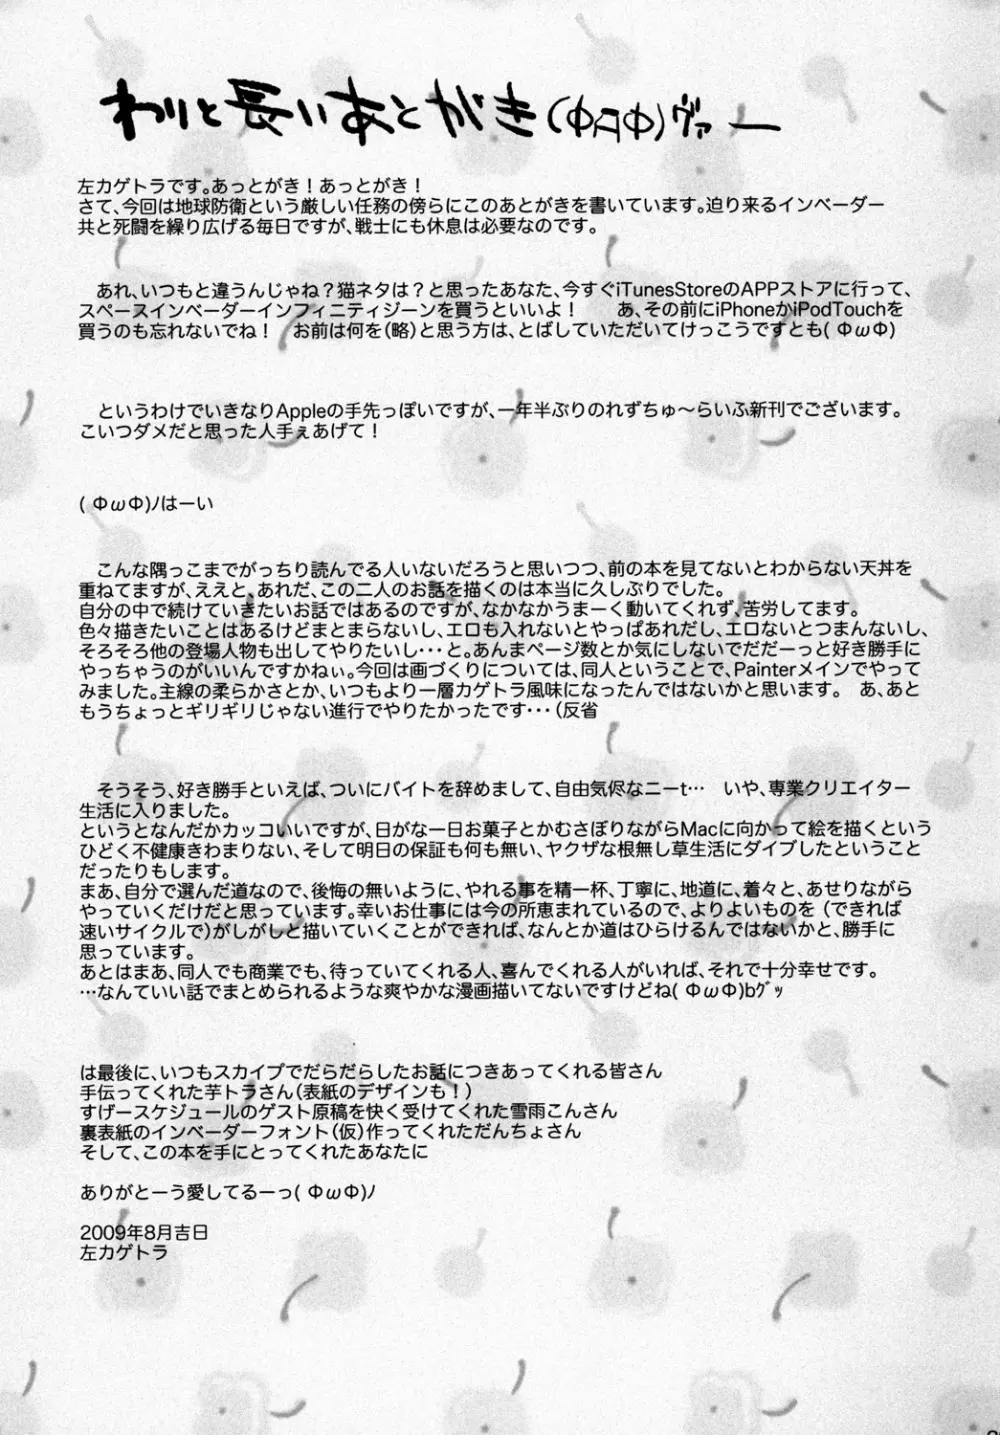 わりと長いあとがき(Φ月Φ)ヴァー
左カゲトラです。あっとがき！あっとがき！
さて、今回は地球防衛という厳しい任務の傍らにこのあとがきを書いています。迫り来るインベーダー
共と死闘を繰り広げる毎日ですが、戦士にも休息は必要なのです。
あれ、いつもと違うんじゃね？猫ネタは？と思ったあなた、今すぐiTunesStoreのAPPストアに行って、
スペースインベーダーインフィニティジーンを買うといいよ！　　あ、その前にiPhoneかiPodTouchを
買うのも忘れないでね！　お前は何を（略）と思う方は、とばしていただいてけっこうですとも( ΦωΦ)
というわけでいきなりAppleの手先っぽいですが、一年半ぶりのれずちゅ～らいふ新刊でございます。
こいつダメだと思った人手ぇあげて！
( ΦωΦ)ﾉはーい
こんな隅っこまでがっちり読んでる人いないだろうと思いつつ、前の本を見てないとわからない天丼を
重ねてますが、ええと、あれだ、この二人のお話を描くのは本当に久しぶりでした。
自分の中で続けていきたいお話ではあるのですが、なかなかうまーく動いてくれず、苦労してます。
色々描きたいことはあるけどまとまらないし、エロも入れないとやっぱあれだし、エロないとつまんないし、
そろそろ他の登場人物も出してやりたいし・・・と。あんまページ数とか気にしないでだだーっと好き勝手に
やっちゃうのがいいんですかねぃ。今回は画づくりについては、同人ということで、Painterメインでやって
みました。主線の柔らかさとか、いつもより一層カゲトラ風味になったんではないかと思います。　あ、あと
もうちょっとギリギリじゃない進行でやりたかったです・・・（反省
そうそう、好き勝手といえば、ついにバイトを辞めまして、自由気侭なニーt…　いや、専業クリエイター
生活に入りました。
というとなんだかカッコいいですが、日がな一日お菓子とかむさぼりながらMacに向かって絵を描くという
ひどく不健康きわまりない、そして明日の保証も何も無い、ヤクザな根無し草生活にダイブしたということ
だったりもします。
まあ、自分で選んだ道なので、後悔の無いように、やれる事を精一杯、丁寧に、地道に、着々と、あせりながら
やっていくだけだと思っています。幸いお仕事には今の所恵まれているので、よりよいものを（できれば
速いサイクルで）がしがしと描いていくことができれば、なんとか道はひらけるんではないかと、勝手に
思っています。
あとはまあ、同人でも商業でも、待っていてくれる人、喜んでくれる人がいれば、それで十分幸せです。
…なんていい話でまとめられるような爽やかな漫画描いてないですけどね( ΦωΦ)bｸﾞｯ
は最後に、いつもスカイプでだらだらしたお話につきあってくれる皆さん
手伝ってくれた芋トラさん（表紙のデザインも！）
すげースケジュールのゲスト原稿を快く受けてくれた雪雨こんさん
裏表紙のインベーダーフォント（仮）作ってくれただんちょさん
そして、この本を手にとってくれたあなたに
ありがとーう愛してるーっ( ΦωΦ)ﾉ
2009年8月吉日
左カゲトラ